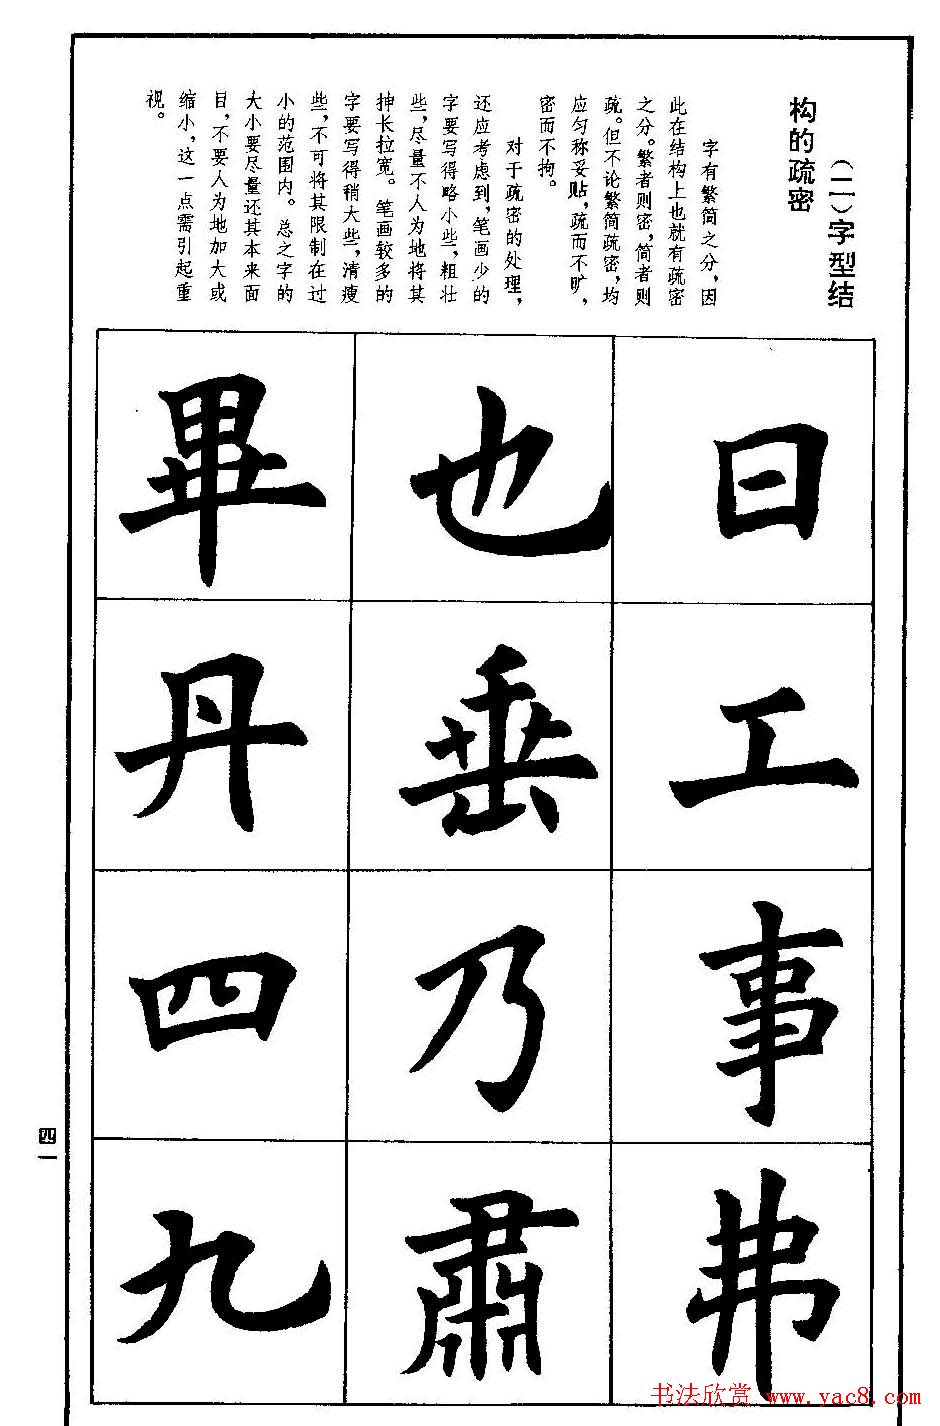 （二）字型结
构的疏密
字有繁简之分，因
此在结构上也就有疏密
之分。繁者则密，简者则
疏。但不论繁简疏密，均
应匀称妥贴，疏而不旷，
密而不拘。
对于疏密的处理，
还应考虑到，笔画少的
字要写得略小些，粗壮
些，尽量不人为地将其
抻长拉宽。笔画较多的
字要写得稍大些，清瘦
些，不可将其限制在过
小的范围内。总之字的
大小要尽量还其本来面
目，不要人为地加大或
缩小，这一点需引起重
视。
日工事弗
也垂乃肅
畢丹四九
四一
书法欣赏 www.yac8.com